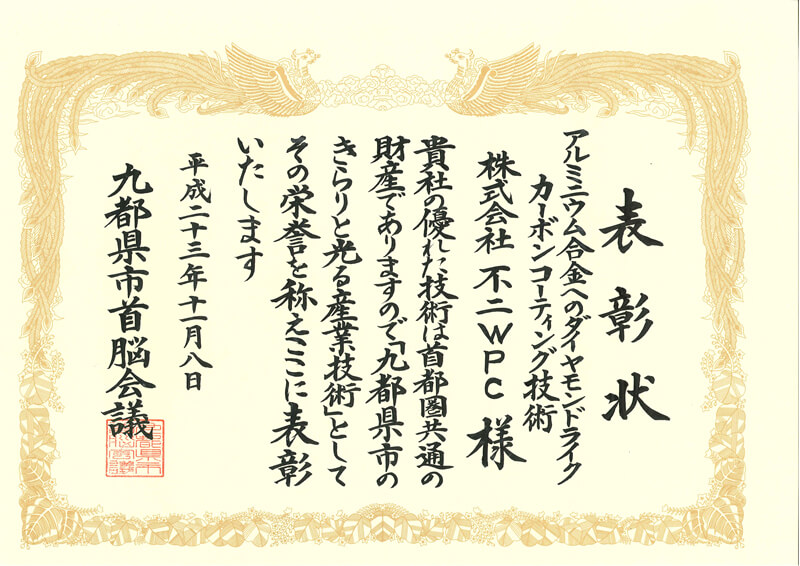 表彰状
アルミニウム合金へのダイヤモンドライク
カーボンコーティング技術
株式会社 不二WPC 様
貴社の優れた技術は首都圏共通の
財産でありますので「九都県市の
きらりと光る産業技術」として
その栄誉を称えここに表彰
いたします
平成二十三年十一月八日
九都県市首脳会議